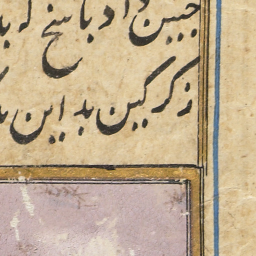 چنین داد پاسخ که با
ز کرگین بد این